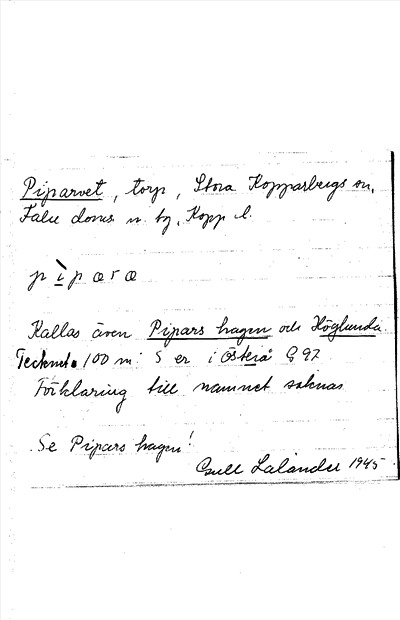 Piparvet, torp, Stora Kopparbergs sn,
Falu doms n tg, Kopp l.
p ì p æ r æ
Kallas även Pipars hagen och Höglunda
Tecknet 100 m S er i Österå G 97
Förklaring till namnet saknas
Se Pipars hagen!
Lalander 1945